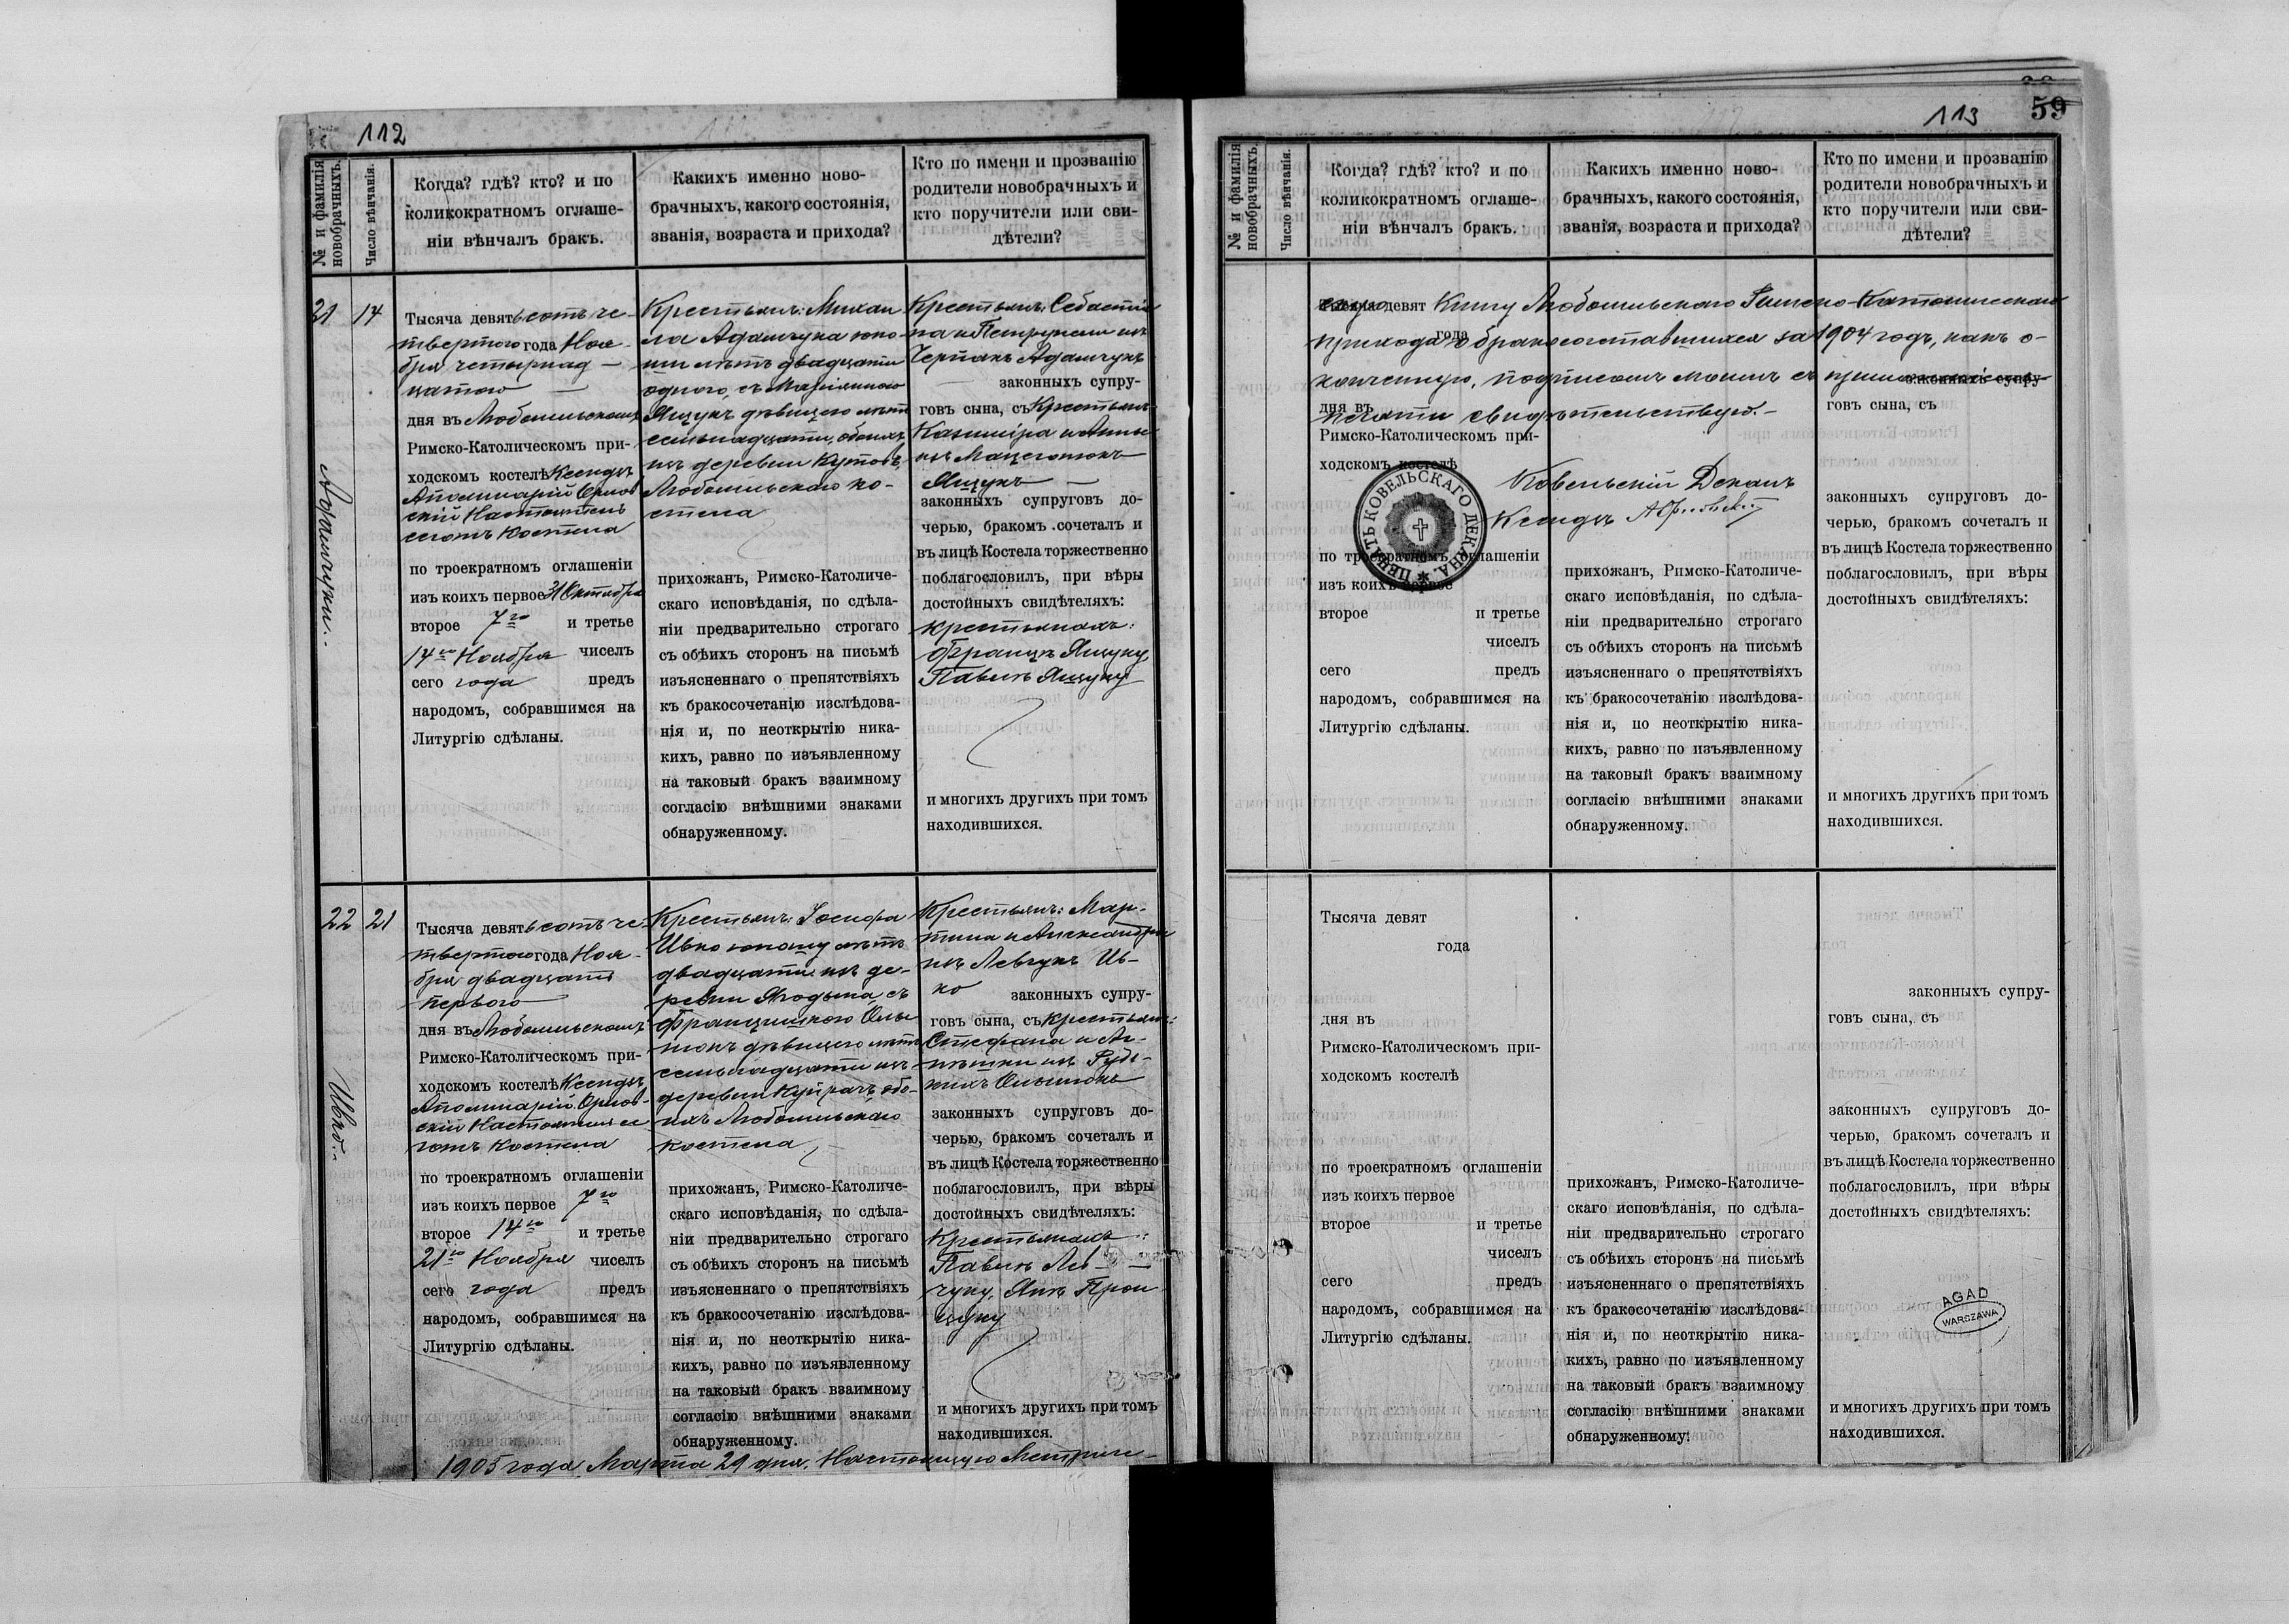 112
№ и фамилія
новобрачныхъ.
Число вѣнчанія.
Когда? гдѣ? кто? и по
коликократномъ оглаше-
ніи вѣнчалъ бракъ.
Какихъ именно ново-
брачныхъ, какого состоянія,
званія, возраста и прихода?
Кто по имени и прозванію
родители новобрачныхъ и
кто поручители или сви-
дѣтели?
21
14
Адамчуки.
Тысяча девятьсотъ че-
твертого года Ноя-
бря четырнад-
цатого
дня въ Любомльскомъ
Римско-Католическомъ при-
ходскомъ костелѣ Ксендзъ
Аполинарій Орлов-
скій Настоятель
сего костела
по троекратномъ оглашеніи
изъ коихъ первое 31 Октября
второе 7го и третье
14го Ноября чиселъ
сего года предъ
народомъ, собравшимся на
Литургію сдѣланы.
Крестьянъ: Михаи
ла Адамчука юно-
шу лѣтъ двадцати
одного, съ Маріянною
Ящукъ дѣвицею лѣтъ
семьнадцати, обоихъ
изъ деревни Кутовъ,
Любомльскаго ко-
стела
прихожанъ, Римско-Католиче-
скаго исповѣданія, по сдѣла-
ніи предварительно строгаго
съ обѣихъ сторонъ на письмѣ
изъясненнаго о препятствіяхъ
къ бракосочетанію изслѣдова-
нія и, по неоткрытію ника-
кихъ, равно по изъявленному
на таковый бракъ взаимному
согласію внѣшними знаками
обнаруженному.
Крестьянъ: Себастія
на и Петрунели изъ
Адамчукъ
законныхъ супру-
говъ сына, съ Крестьянъ
Казиміра и Анны
изъ
Ящукъ
законныхъ супруговъ до-
черью, бракомъ сочеталъ и
въ лицѣ Костела торжественно
поблагословилъ, при вѣры
достойныхъ свидѣтеляхъ:
крестьянахъ:
Францъ Ящуку,
Павелъ Ящуку
и многихъ другихъ при томъ
находившихся.
22
21
Ивко.
Тысяча девятьсотъ че-
твертого года Ноя-
бря двадцать
перваго
дня въ Любомльскомъ
Римско-Католическомъ при-
ходскомъ костелѣ Ксендзъ
Аполинарій Орлов-
скій Настоятель се
гожъ костела
по троекратномъ оглашеніи
изъ коихъ первое 7го
второе 14го и третье
21го Ноября чиселъ
сего года предъ
народомъ, собравшимся на
Литургію сдѣланы.
Крестьянъ: Іосифа
Ивко юношу лѣтъ
двадцати изъ де-
ревни Ягодына, съ
Францишкою
дѣвицею лѣтъ
семьнадцати изъ
деревни обо-
ихъ Любомльскаго
костела,
прихожанъ, Римско-Католиче-
скаго исповѣданія, по сдѣла-
ніи предварительно строгаго
съ обѣихъ сторонъ на письмѣ
изъясненнаго о препятствіяхъ
къ бракосочетанію изслѣдова-
нія и, по неоткрытію ника-
кихъ, равно по изъявленному
на таковый бракъ взаимному
согласію внѣшними знаками
обнаруженному.
Крестьянъ: Мар-
тина и Александры
изъ Левчукъ Ив-
ко законныхъ супру-
говъ сына, съ крестьянъ:
Стефана и Ан-
законныхъ супруговъ до-
черью, бракомъ сочеталъ и
въ лицѣ Костела торжественно
поблагословилъ, при вѣры
достойныхъ свидѣтеляхъ:
Крестьянахъ:
Павелъ Лев-
чуку, Янъ
и многихъ другихъ при томъ
находившихся.
1905 года Марта 29 дня. Настоящую Метриче-
113
59
№ и фамилія
новобрачныхъ.
Число вѣнчанія.
Когда? гдѣ? кто? и по
коликократномъ оглаше-
ніи вѣнчалъ бракъ.
Какихъ именно ново-
брачныхъ, какого состоянія,
званія, возраста и прихода?
Кто по имени и прозванію
родители новобрачныхъ и
кто поручители или сви-
дѣтели?
Тысяча девят
года
скую Книгу Любомльскаго Римско-Католическаго
прихода о бракосоставшихся за 1904 годъ, какъ о-
конченную, подписомъ моимъ съ приложеніемъ
печати свидѣтельствую.
законныхъ супру-
дня въ
говъ сына, съ
Римско-Католическомъ при-
ходскомъ костелѣ
Ковельскій Деканъ
Ксендзъ
ПЕЧАТЬ КОВЕЛЬСКАГО ДЕКАНА.
по троекратномъ оглашеніи
изъ коихъ первое
второе и третье
чиселъ
сего предъ
народомъ, собравшимся на
Литургію сдѣланы.
прихожанъ, Римско-Католиче-
скаго исповѣданія, по сдѣла-
ніи предварительно строгаго
съ обѣихъ сторонъ на письмѣ
изъясненнаго о препятствіяхъ
къ бракосочетанію изслѣдова-
нія и, по неоткрытію ника-
кихъ, равно по изъявленному
на таковый бракъ взаимному
согласію внѣшними знаками
обнаруженному.
законныхъ супруговъ до-
черью, бракомъ сочеталъ и
въ лицѣ Костела торжественно
поблагословилъ, при вѣры
достойныхъ свидѣтеляхъ:
и многихъ другихъ при томъ
находившихся.
Тысяча девят
года
дня въ
Римско-Католическомъ при-
ходскомъ костелѣ
по троекратномъ оглашеніи
изъ коихъ первое
второе и третье
чиселъ
сего предъ
народомъ, собравшимся на
Литургію сдѣланы.
прихожанъ, Римско-Католиче-
скаго исповѣданія, по сдѣла-
ніи предварительно строгаго
съ обѣихъ сторонъ на письмѣ
изъясненнаго о препятствіяхъ
къ бракосочетанію изслѣдова-
нія и, по неоткрытію ника-
кихъ, равно по изъявленному
на таковый бракъ взаимному
согласію внѣшними знаками
обнаруженному.
законныхъ супру-
говъ сына, съ
законныхъ супруговъ до-
черью, бракомъ сочеталъ и
въ лицѣ Костела торжественно
поблагословилъ, при вѣры
достойныхъ свидѣтеляхъ:
AGAD
WARSZAWA
и многихъ другихъ при томъ
находившихся.